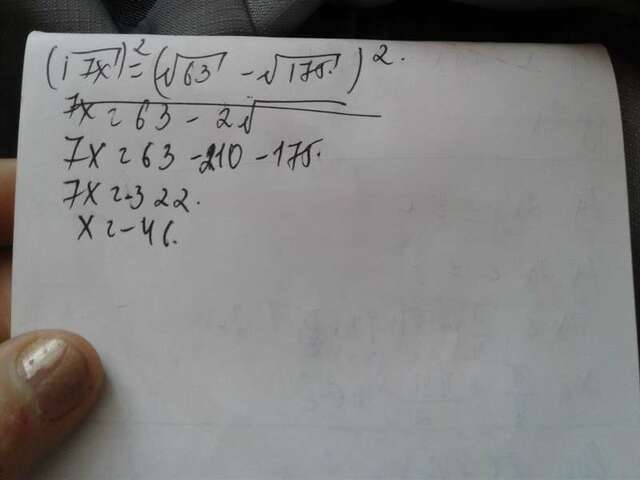 (√7x)² = (√63 - √175)².
7x = 63 - 2√
7x = 63 - 210 - 175.
7x = -322.
x = -46.